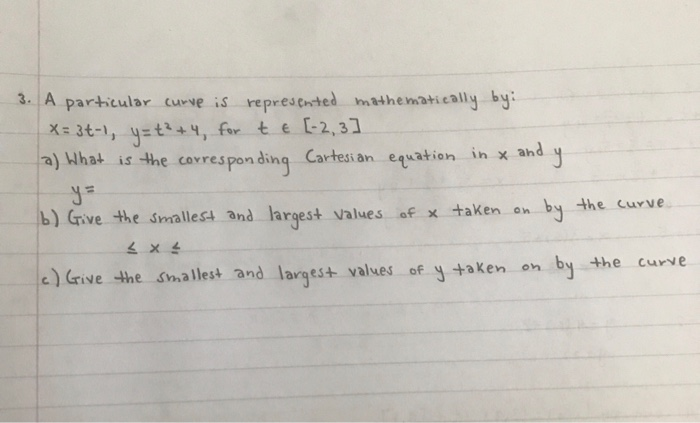 3. A particular curve is represented mathematically by:
x=3t-1, y=t²+4, for t ε [-2,3]
a) What is the corresponding Cartesian equation in x and y
y=
b) Give the smallest and largest values of x taken on by the curve
≤ x ≤
c) Give the smallest and largest values of y taken on by the curve